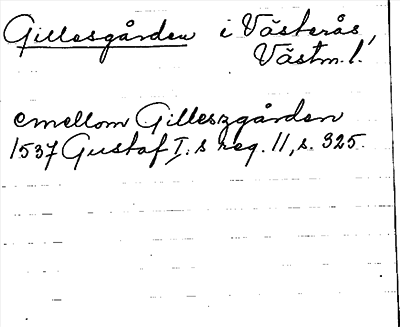 Gillesgården i Västerås,
Västm.l.
emellom Gilleszgården
1537 Gustaf I:s reg. 11, s. 325.